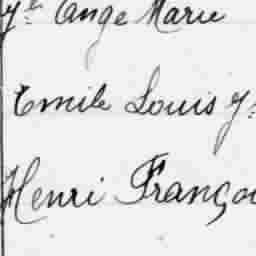 Ange Marie
Emile Louis
Henri Françoi